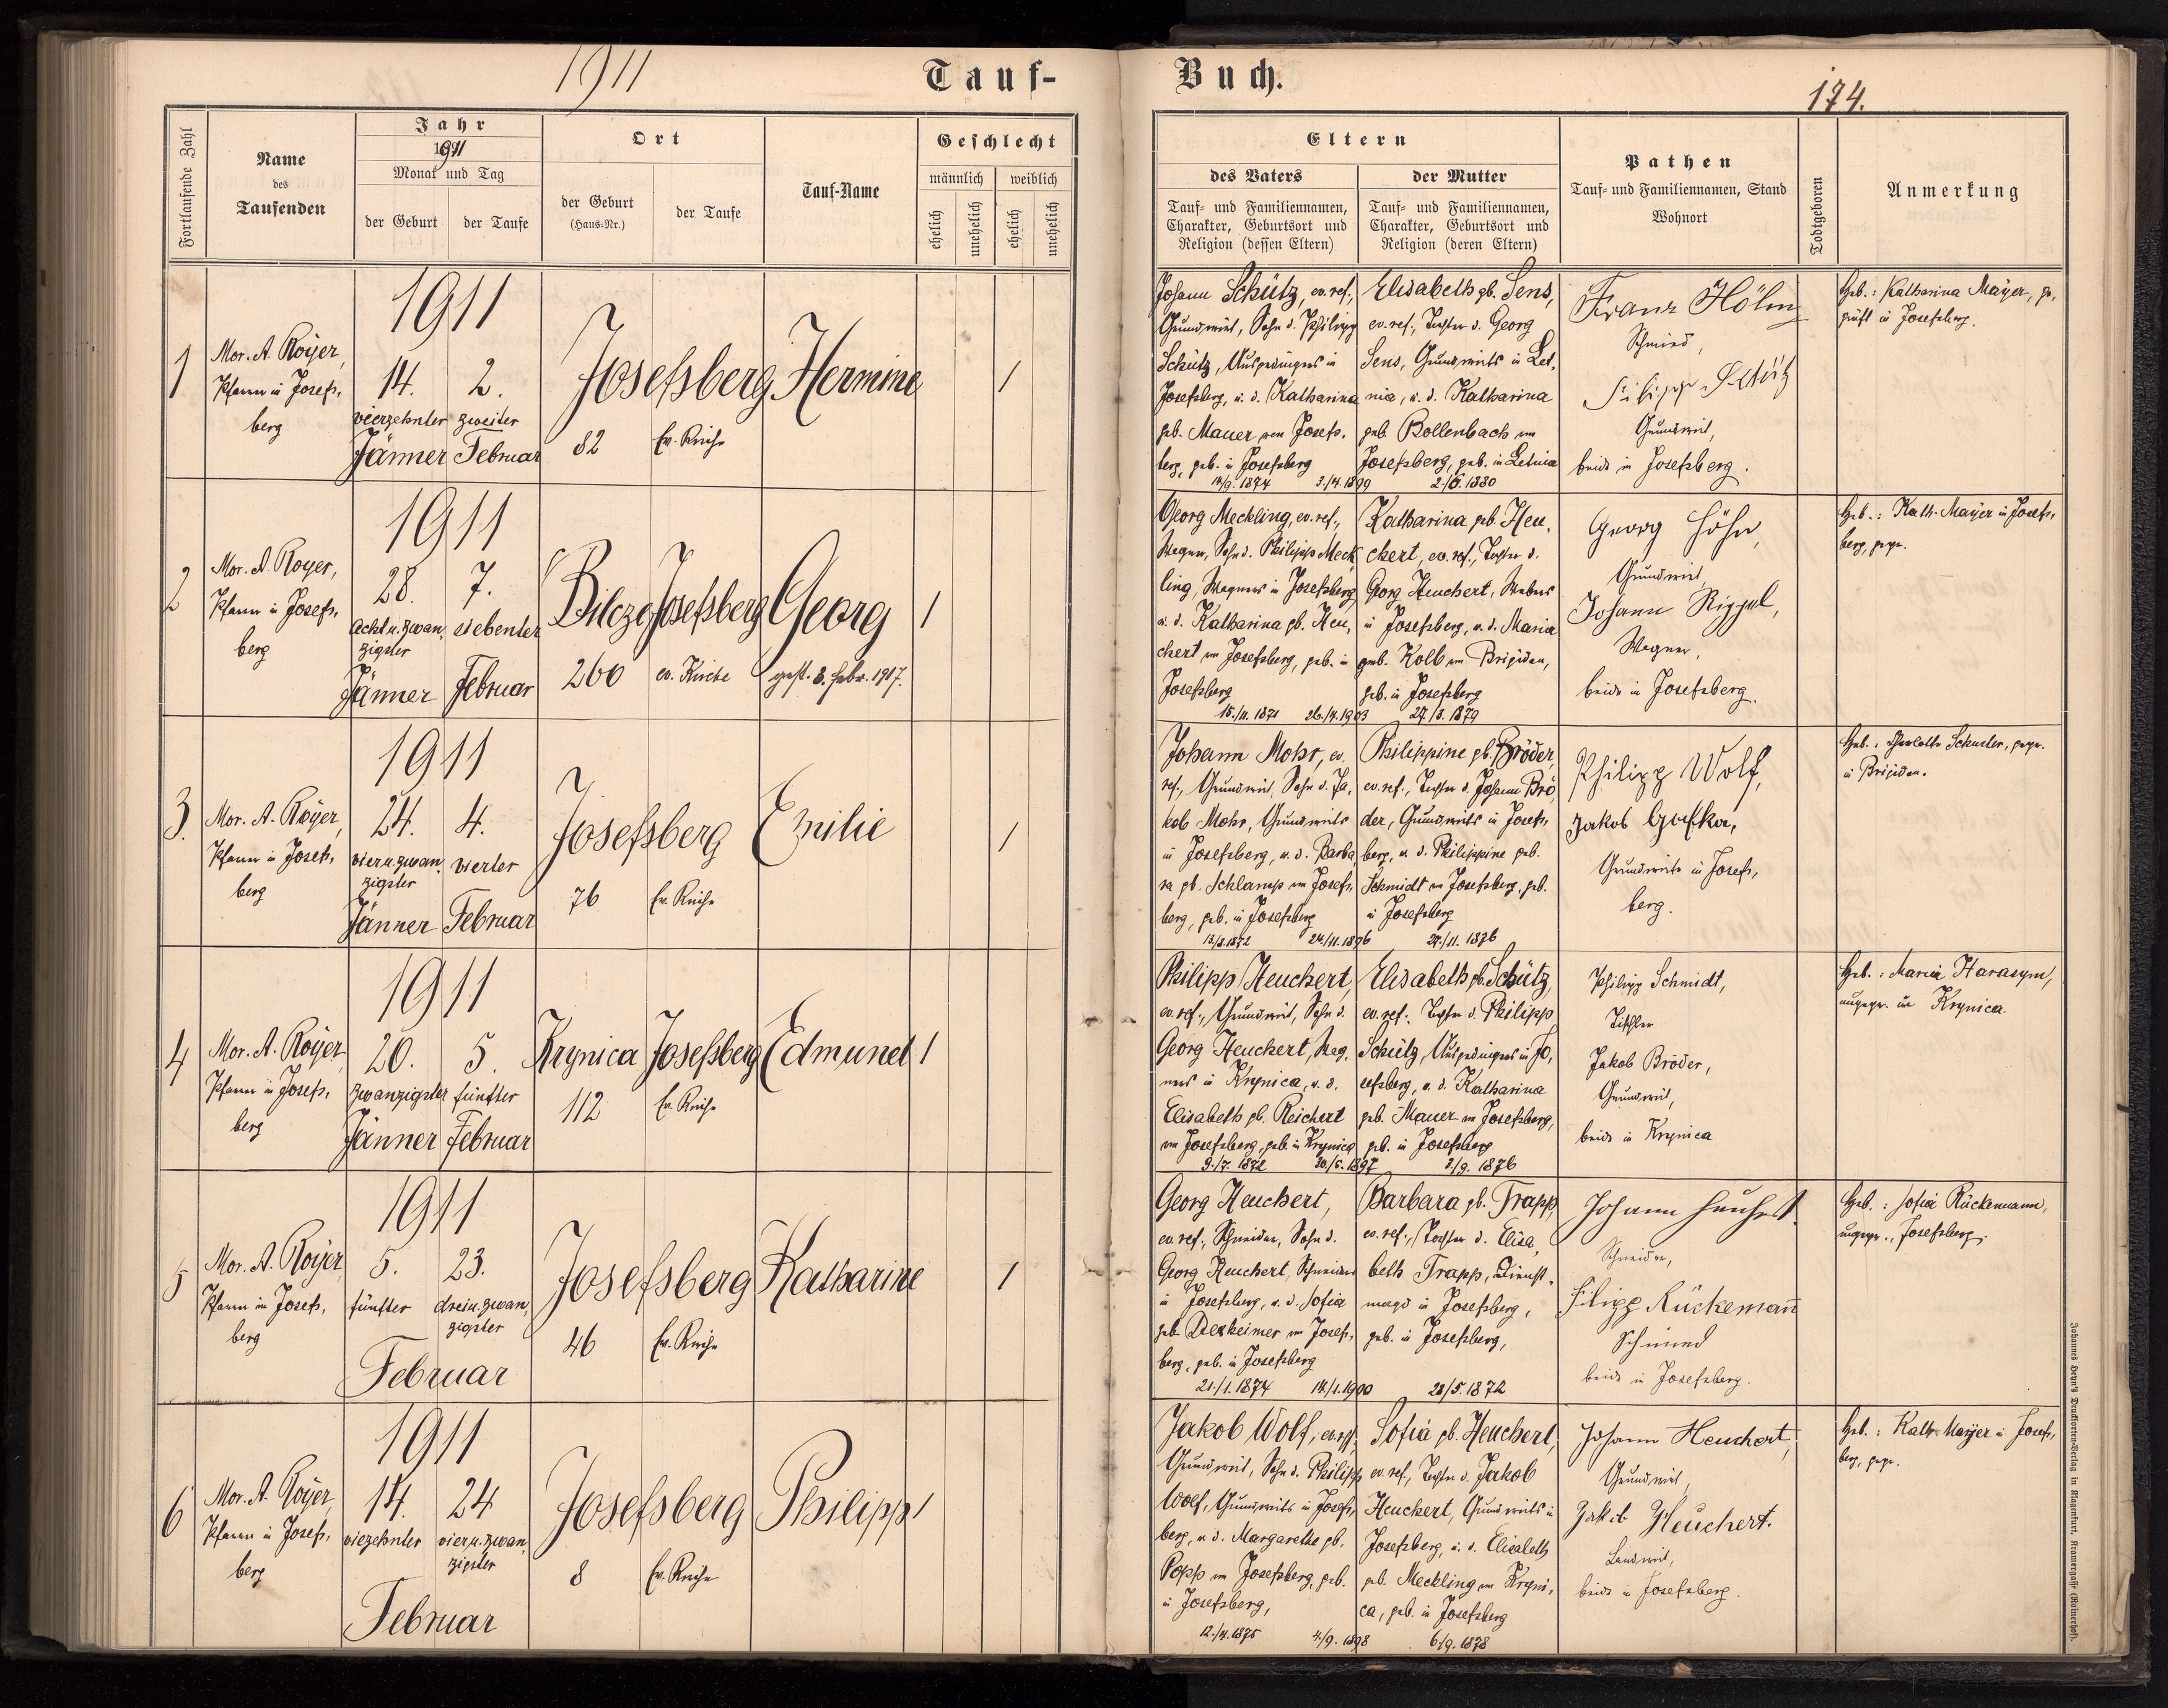 1911
Tauf-
Buch.
174.
Fortlaufende Zahl
Name
des
Taufenden
Jahr
1911
Monat und Tag
der Geburt
der Taufe
Ort
der Geburt
(Haus-Nr.)
der Taufe
Tauf-Name
Geschlecht
männlich
weiblich
ehelich
unehelich
ehelich
unehelich
Eltern
des Vaters
Tauf- und Familiennamen,
Charakter, Geburtsort und
Religion (dessen Eltern)
der Mutter
Tauf- und Familiennamen,
Charakter, Geburtsort und
Religion (deren Eltern)
Pathen
Tauf- und Familiennamen, Stand
Wohnort
Todtgeboren
Anmerkung
1
Mor. A. Royer,
Pfarrer in Josefs,
berg
1911
14. 2.
vierzehnter zweiter
Jänner Februar
Josefsberg
82 Ev. Kirche
Hermine
1
Johann Schütz, ev. ref.,
Grundwirt, Sohn d. Philipp
Schütz, Ausgedingers in
Josefsberg, u. d. Katharina
geb. Mauer von Josefs,
berg, geb. in Josefsberg
3./4. 1899
Elisabeth gb. Sens,
ev. ref., Tochter d. Georg
Sens, Grundwirts in Let,
nia, u. d. Katharina
geb. Bollenbach von
Josefsberg, geb. in Letnia
1880
Franz Höhn
Schmied,
Filipp Schütz
Grundwirt,
beide in Josefsberg.
Heb.: Katharina Mayer, ge,
prüft in Josefsberg.
2
Mor. A. Royer,
Pfarrer in Josefs,
berg
1911
28. 7.
acht u. zwan, siebenter
zigster
Jänner Februar
Bilcze Josefsberg
260 ev. Kirche
Georg
gest. 3. Febr. 1917.
1
Georg Meckling, ev. ref.,
Wagner, Sohn d. Philipp Meck
ling, Wagners in Josefsberg
u. d. Katharina gb. Heu,
chert von Josefsberg, geb. in
Josefsberg
15./11. 1871 26./4. 1903
Katharina geb. Heu,
chert, ev. ref., Tochter d.
Georg Heuchert, Webers
in Josefsberg, u. d. Maria
geb. Kolb von Brigidau,
geb. in Josefsberg
27./3. 1879
Georg Höhn,
Grundwirt
Johann Rippel,
Wagner,
beide in Josefsberg.
Heb.: Kath. Mayer in Josefs,
berg, gepr.
3.
Mor. A. Royer,
Pfarrer in Josefs,
berg
1911
24. 4.
vier u. zwan, vierter
zigster
Jänner Februar
Josefsberg
76 Ev. Kirche
Emilie
1
Johann Mohr, ev.
ref., Grundwirt, Sohn d. Ja,
kob Mohr, Grundwirts
in Josefsberg, u. d. Barba,
ra gb. Schlamp von Josefs,
berg, geb. in Josefsberg
24./11. 1896
Philippine gb. Bröder,
ev. ref., Tochter d. Johann Brö,
der, Grundwirts in Josefs,
berg, u. d. Philippine geb.
Schmidt von Josefsberg, geb.
in Josefsberg
27./11. 1876
Philipp Wolf,
Jakob Gaffka,
Grundwirte in Josefs,
berg.
Heb.: Charlotte Schuster, gepr.
in Brigidau.
4
Mor. A. Royer
Pfarrer in Josefs,
berg
1911
20. 5.
zwanzigster fünfter
Jänner Februar
Krynica Josefsberg
112 Ev. Kirche
Edmund
1
Philipp Heuchert,
ev. ref., Grundwirt, Sohn d.
Georg Heuchert, Wag,
ners in Krynica, u. d.
Elisabeth gb. Reichert
von Josefsberg, geb. in Krynica
9./7. 1872 30./5. 1897
Elisabeth gb. Schütz,
ev. ref. Tochter d. Philipp
Schütz, Ausgedingers in Jo,
sefsberg, u. d. Katharina
geb. Mauer von Josefsberg,
geb. in Josefsberg
3./9. 1876
Philipp Schmidt,
Tischler
Jakob Bröder,
Grundwirt,
beide in Krynica
Heb.: Maria Harasym,
ungepr. in Krynica.
5
Mor. A. Royer
Pfarrer in Josefs,
berg
1911
5. 23.
fünfter drei u. zwan,
zigster
Februar
Josefsberg
46 Ev. Kirche
Katharine
1
Georg Heuchert,
ev. ref., Schneider, Sohn d.
Georg Heuchert, Schneiders
in Josefsberg, u. d. Sofia
geb. Dexheimer von Josefs,
berg, geb. in Josefsberg
21./1. 1874 14./1. 1900
Barbara gb. Trapp,
ev. ref., Tochter d. Elisa,
beth Trapp, Dienst,
magd in Josefsberg,
geb. in Josefsberg,
28/5. 1872
Johann Heuchert.
Schneider,
Filipp Rückemann
Schmied
beide in Josefsberg.
Heb.: Sofia Rückemann,
ungepr., Josefsberg.
6
Mor. A. Royer,
Pfarrer in Josefs,
berg
1911
14. 24
viezehnter vier u. zwan,
zigster
Februar
Josefsberg
8 Ev. Kirche
Philipp
1
Jakob Wolf, ev. ref.,
Grundwirt, Sohn d. Philipp
Wolf, Grundwirts in Josefs,
berg, u. d. Margarethe gb.
Popp von Josefsberg, geb.
in Josefsberg,
12./4. 1875 4./9. 1898
Sofia gb. Heuchert,
ev. ref., Tochter d. Jakob
Heuchert, Grundwirts in
Josefsberg, u. d. Elisabeth
geb. Meckling von Kryni,
ca, geb. in Josefsberg
6./9. 1878
Johann Heuchert,
Grundwirt,
Jakob Heuchert.
Landwirt,
beide in Josefsberg.
Heb.: Kath. Mayer in Josefs,
berg, gepr.
Johannes Heyn's Drucksorten-Verlag in Klagenfurt, Kramergasse (Rainerhof).